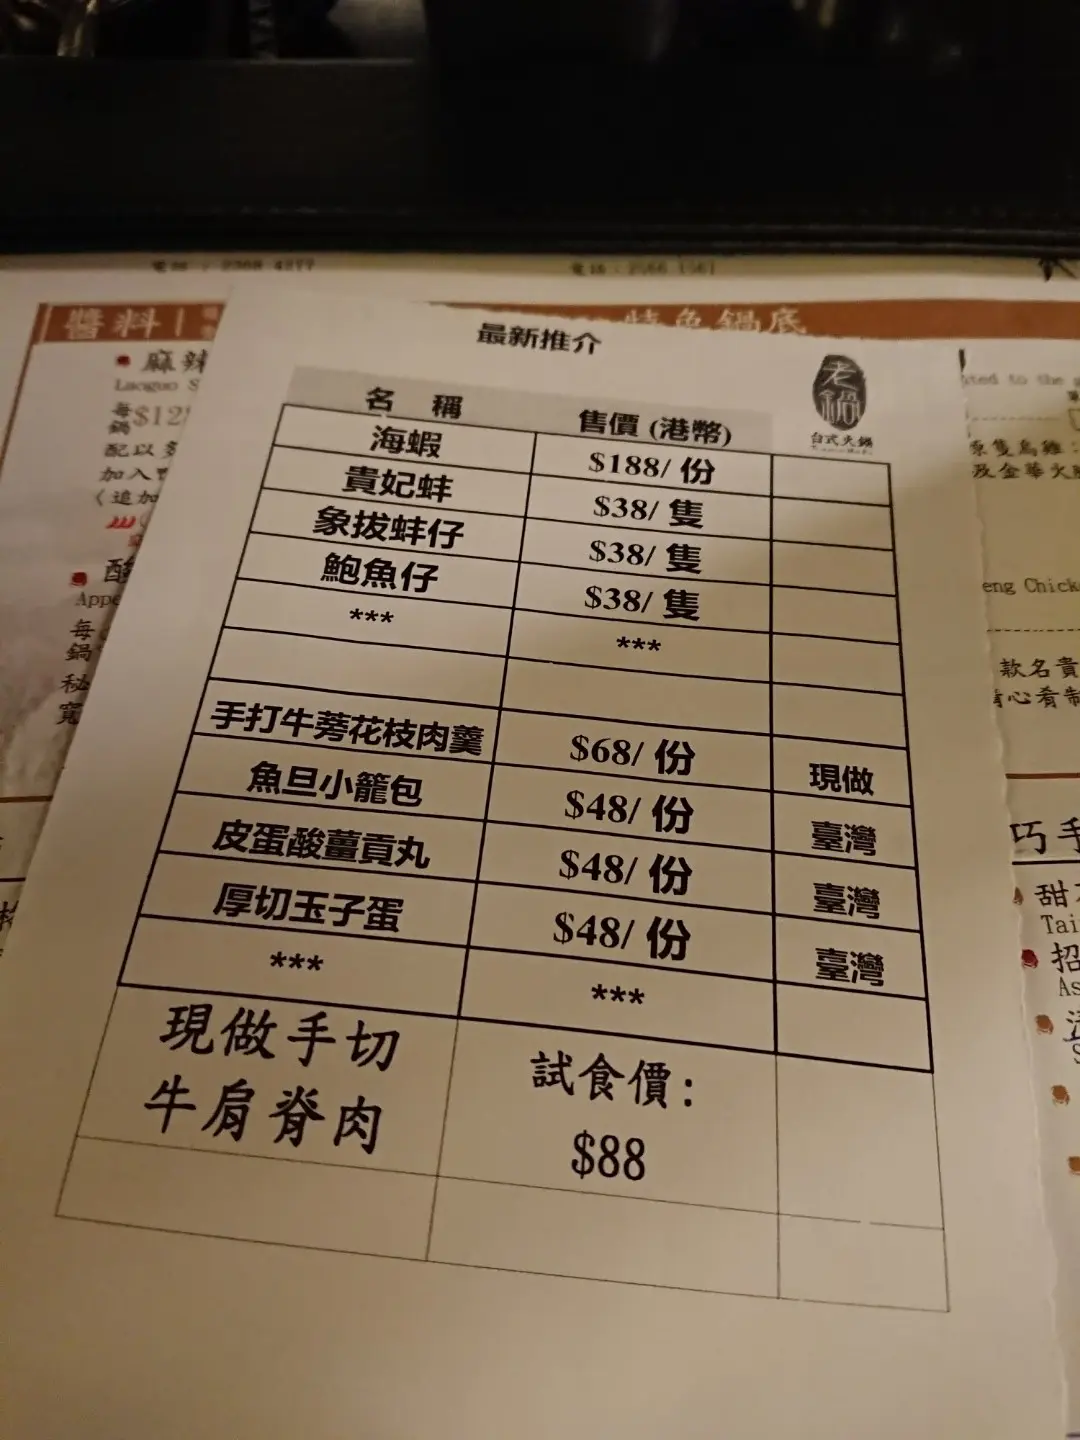 最新推介
老鍋
台式火鍋
名 稱 售價 (港幣)
海蝦 $188/ 份
貴妃蚌 $38/ 隻
象拔蚌仔 $38/ 隻
鮑魚仔 $38/ 隻
*** ***
手打牛蒡花枝肉羹 $68/ 份 現做
魚旦小籠包 $48/ 份 臺灣
皮蛋酸薑貢丸 $48/ 份 臺灣
厚切玉子蛋 $48/ 份 臺灣
*** ***
現做手切 試食價:
牛肩脊肉 $88
電話 : 2368 4277
醬料
特色鍋底
麻辣
Laoguo S
每
鍋
$12
配以
加入
(追加
酸
Appe
每
鍋
秘
寬
ted to the
原隻烏雞
及金華火
eng Chick
款名貴
心肴制
巧手
甜
Tai
招
As